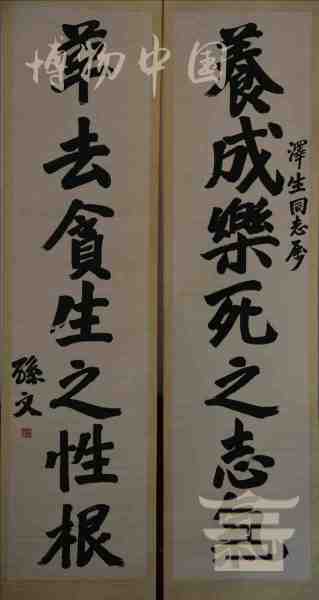 養成樂死之志氣
澤生同志屬
革去貪生之性根
孫文
博物中国